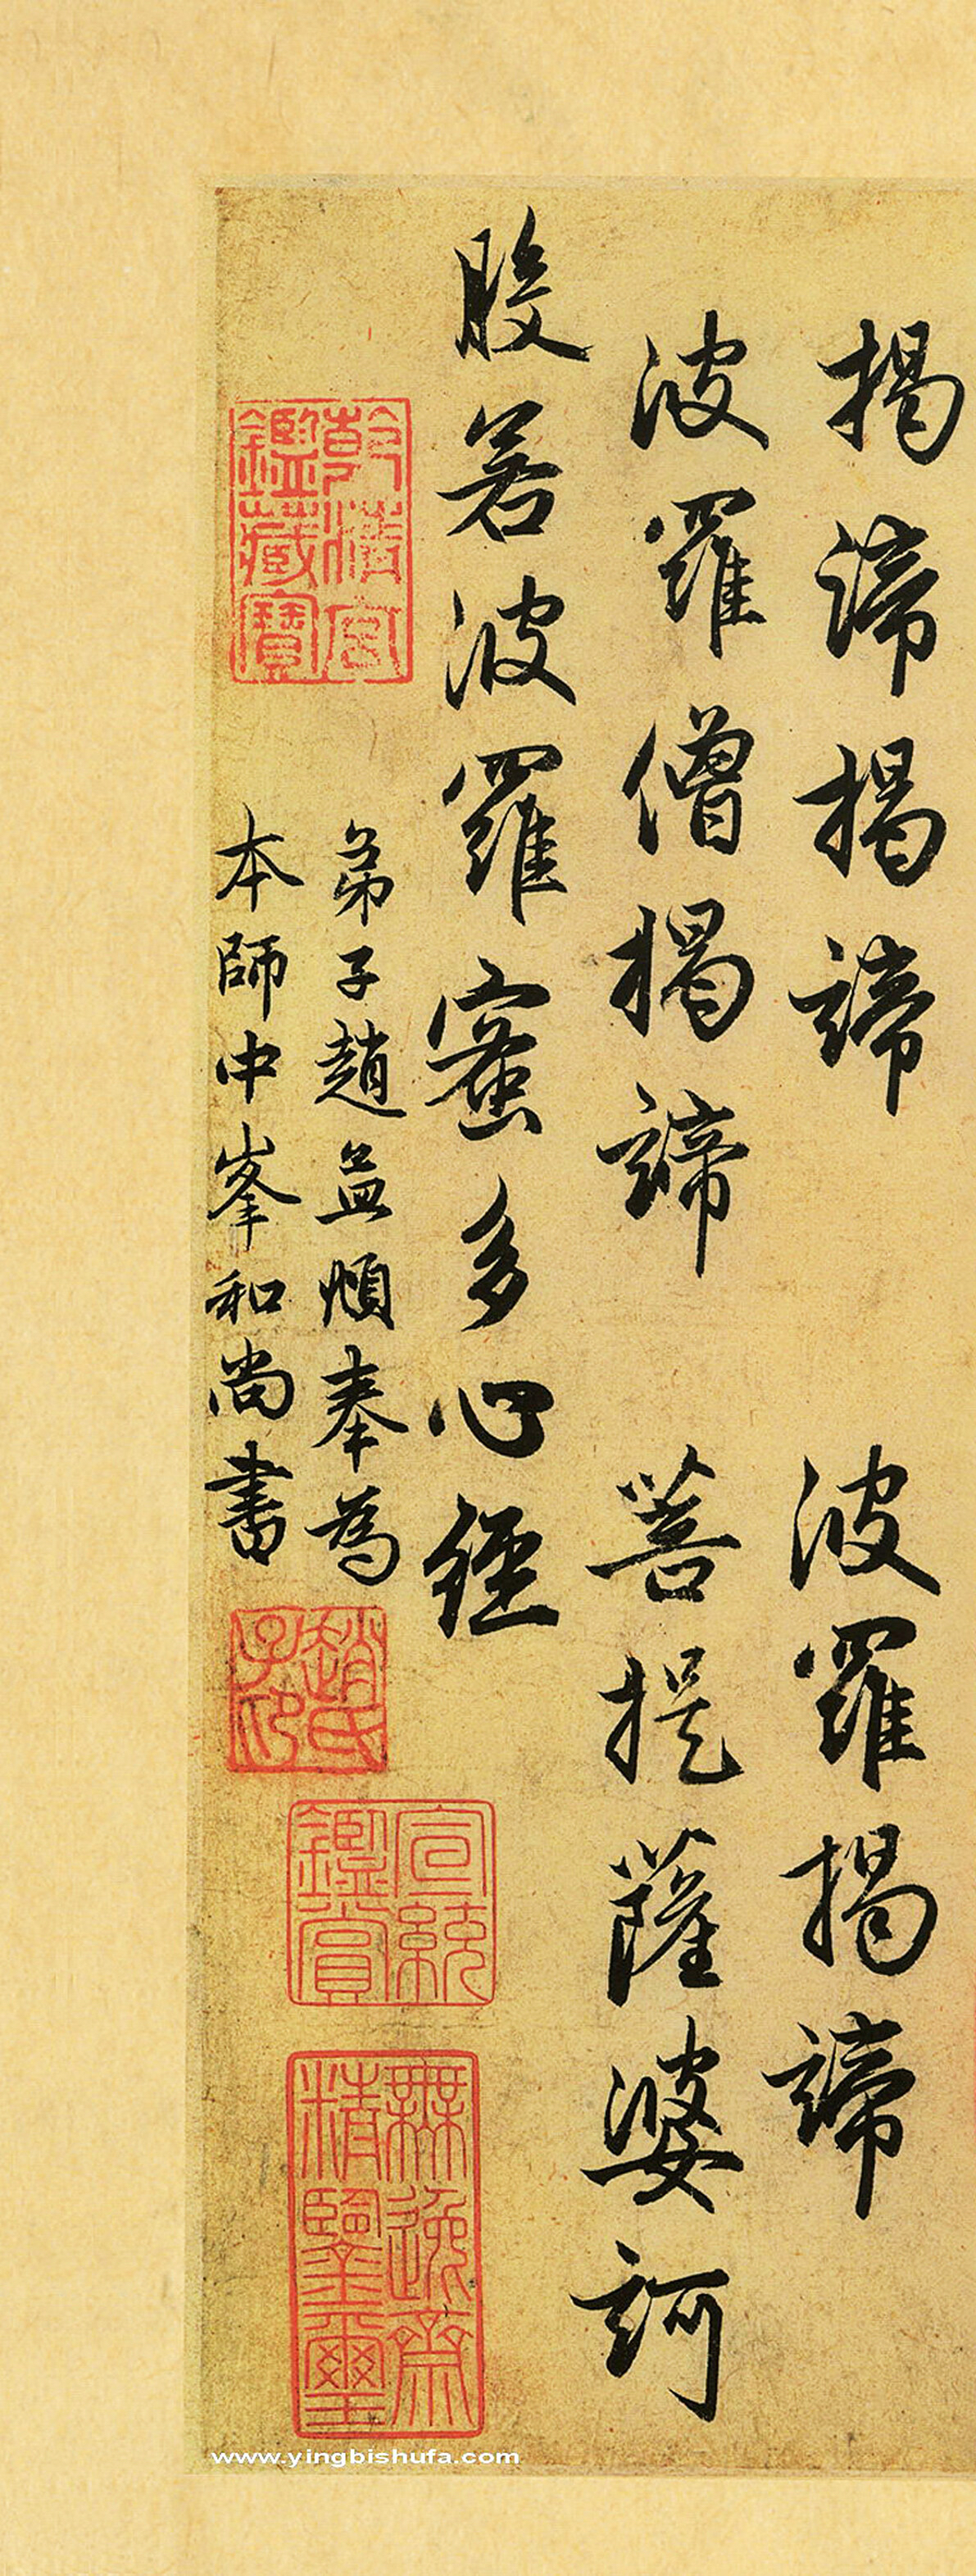 揭諦揭諦 波羅揭諦
波羅僧揭諦 菩提薩婆訶
般若波羅蜜多心經
弟子趙孟頫奉為
本師中峯和尚書
乾清宮鑑藏寶
趙氏子昂
宣統鑑賞
無逸齋精鑒璽
www.yingbishufa.com